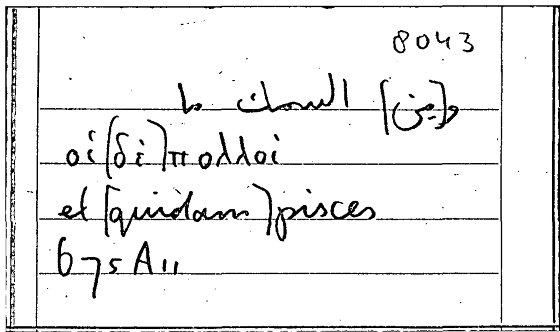 8043
و[من] السمك ما
οἱ [δὲ] πολλοὶ
et [quidam] pisces
675 A 11